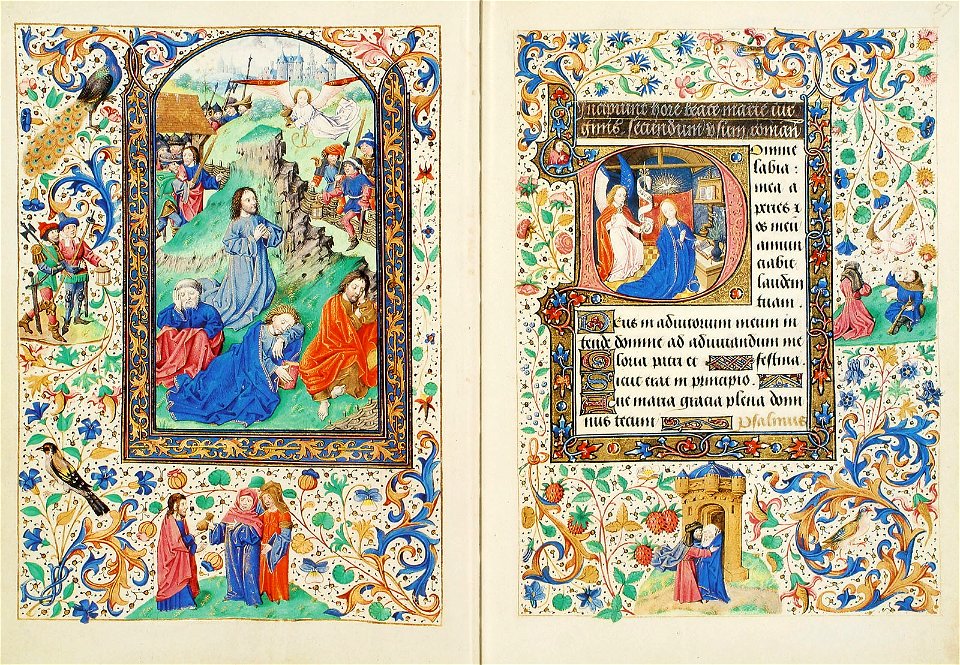 Incipiunt hore beate marie vir
ginis . secundum vsum roman
Domine
labia :
mea a
peries et
os meu
annun
ciabit
laudem
tuam .
Deus in adiutorium meum in
tende domine ad adiuuandum me
Gloria patri et festina
Sicut erat in principio .
Aue maria gracia plena domi
nus tecum psalmus